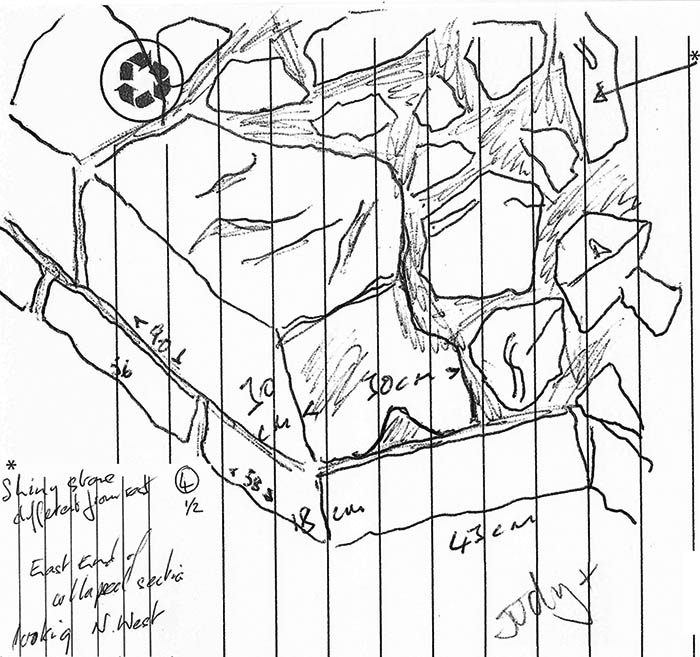 *
90
36
30
cm
30cm
58
18 cm
43cm
* Shiny stone
different from rest
4
1/2
East End of
collapsed section
looking N. West
Judy